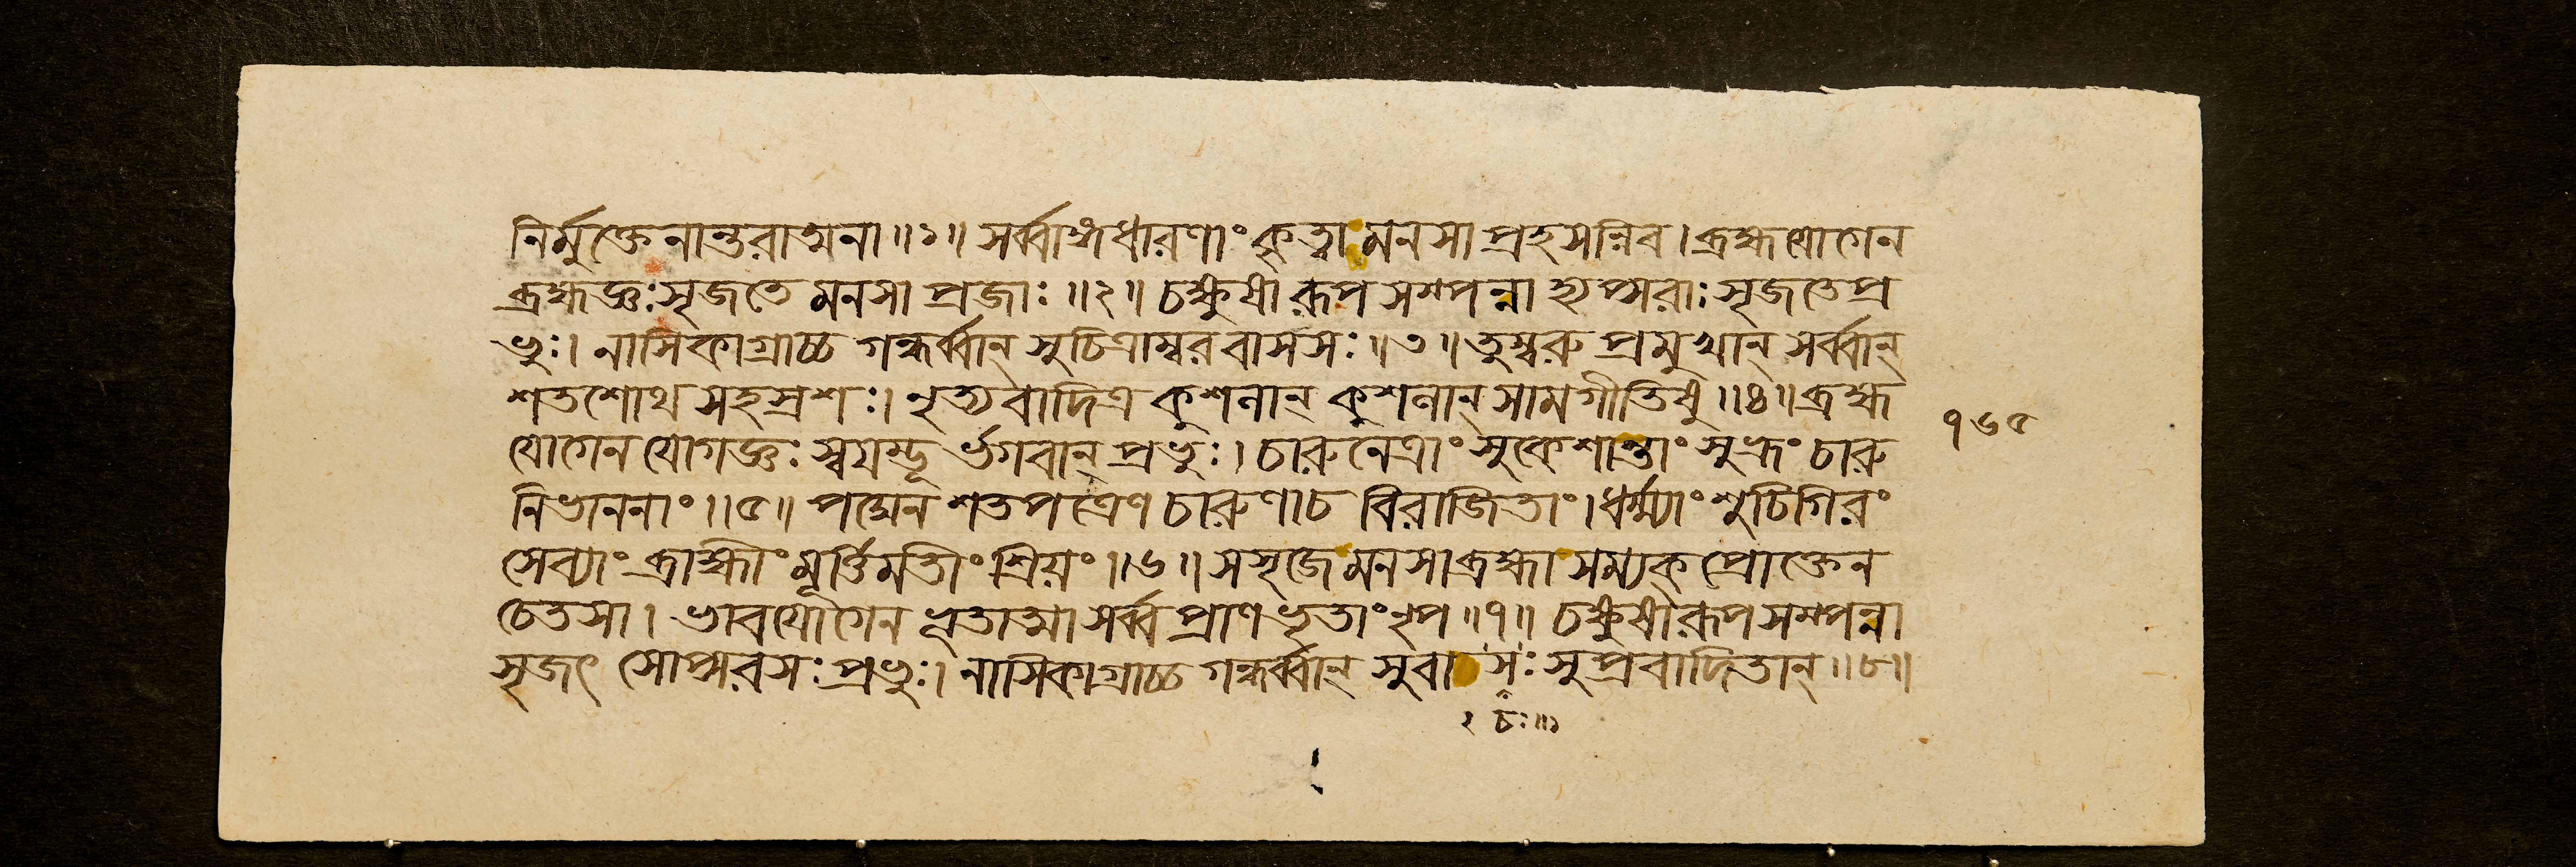 নির্মুক্তেনান্তরাত্মনা॥১॥ সর্ব্বাঙ্গধারণাং কৃত্বা মনসা প্রহসন্নিব। ব্রহ্মযোগেন
ব্রহ্মজ্ঞঃ সৃজতে মনসা প্রজাঃ॥২॥ চক্ষুষী রূপসম্পন্না হ্যপ্সরাঃ সৃজতে প্র
ভুঃ। নাসিকাগ্রাচ্চ গন্ধর্ব্বান্ সুচিত্রাম্বরবাসসঃ॥৩॥ তুম্বরু প্রমুখান্ সর্ব্বান্
শতশোথ সহস্রশঃ। নৃত্যবাদিত্র কুশলান্ কুশলান্ সামগীতিষু॥৪॥ ব্রহ্ম
যোগেন যোগজ্ঞঃ স্বয়ম্ভূর্ভগবান্ প্রভুঃ। চারুনেত্রাং সুকেশান্তাং সুভ্রূং চারু
নিভাননাং॥৫॥ পদ্মেন শতপত্রেণ চারুণাচ বিরাজিতাং। ধর্ম্ম্যাং শুচিগিরং
সেব্যাং ব্রাহ্মীং মূর্ত্তিমতীং শ্রিয়ং॥৬॥ সসৃজে মনসা ব্রহ্মা সম্যক্ প্রোক্তেন
চেতসা। ভাবযোগেন ধৃতাত্মা সর্ব্বপ্রাণভৃতাং নৃপ॥৭॥ চক্ষুষী রূপসম্পন্না
সৃজৎ সোপ্সরসঃ প্রভুঃ। নাসিকাগ্রাচ্চ গন্ধর্ব্বান্ সুবাসঃ সুপ্রবাদিতান্॥৮॥
১৬৫